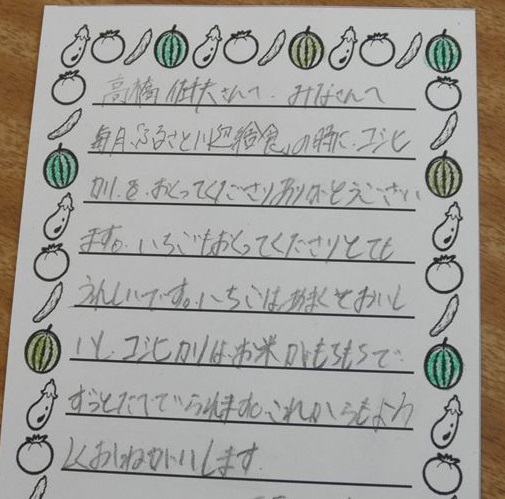 高橋 さんへ. みなさんへ
毎月「ふるさと小包給食」の時に、コシヒ
カリ、を、おくってくださりありがとうござい
ます。いちごもおくってくださりとても
うれしいです。いちごは、あまくておいし
いし、コシヒカリは、お米がもちもちで、
ずっとたべていられます。これからもよろ
しくおねがいします.